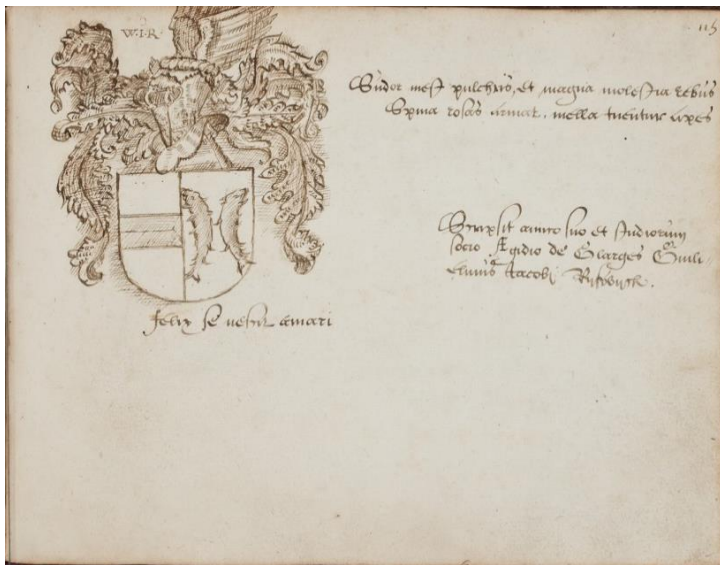 W·I·R·
115
Sudor inest pulchris, et magna molestia rebus
Spina rosas armat, mella tuentur apes
Scripsit amico suo et studiorum
socio Ægidio de Glarges Guili-
elmus Jacobi
felix
amari